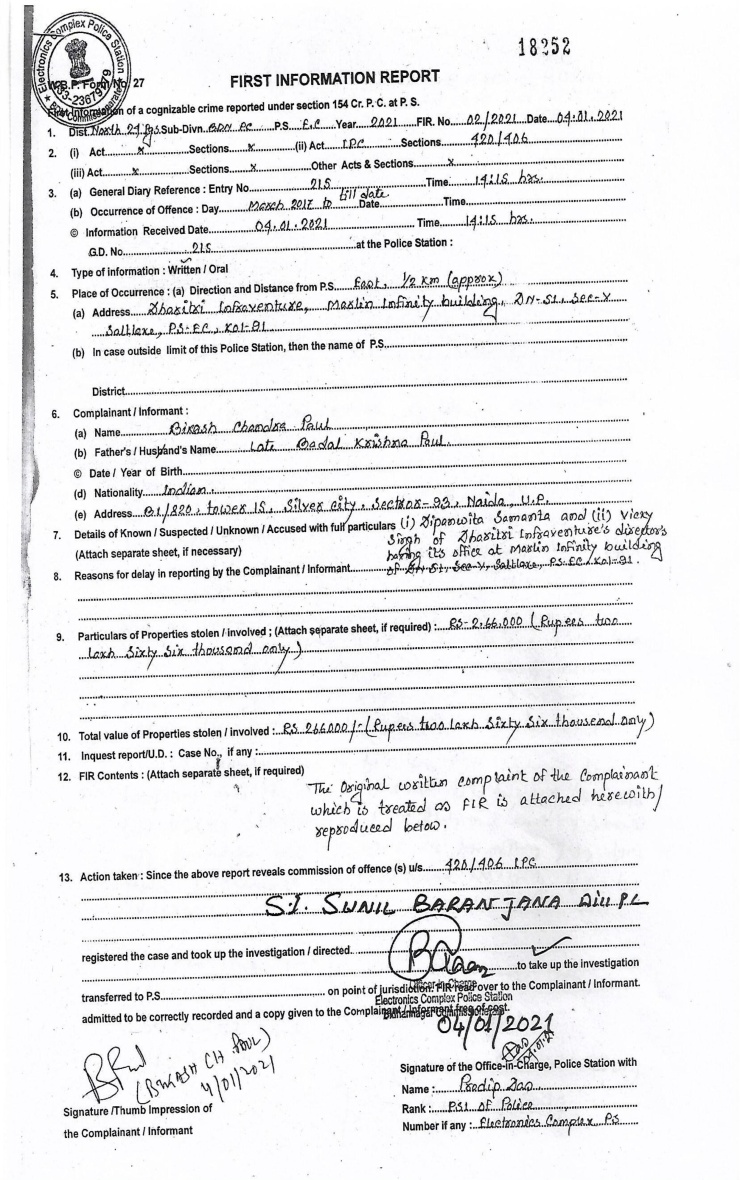 Electronics Complex Police Station
18252
W.B.P. Form No. 27
033-2367
FIRST INFORMATION REPORT
First Information of a cognizable crime reported under section 154 Cr. P. C. at P. S.
1. Dist. North 24 Pgs. Sub-Divn. BDN EC P.S. E.C Year 2021 FIR. No. 02/2021 Date 04.01.2021
2. (i) Act x Sections x (ii) Act IPC Sections 420/406
(iii) Act x Sections x Other Acts & Sections x
3. (a) General Diary Reference : Entry No. 215 Time 14:15 hrs.
(b) Occurrence of Offence : Day March 2017 to till date Date Time
© Information Received Date 04.01.2021 Time 14:15 hrs.
G.D. No. 215 at the Police Station :
4. Type of information : Written / Oral
5. Place of Occurrence : (a) Direction and Distance from P.S. East, 1/2 Km (approx)
(a) Address Dharitri Infraventure, Merlin Infinity building, DN-51, Sec-V
Saltlake, P.S-EC, Kol-91
(b) In case outside limit of this Police Station, then the name of P.S.
District
6. Complainant / Informant :
(a) Name Bikash Chandra Paul
(b) Father's / Husband's Name Late Badal Krishna Paul.
© Date / Year of Birth
(d) Nationality Indian.
(e) Address B1/820, tower 15, Silver City, Sector-93, Noida, U.P.
7. Details of Known / Suspected / Unknown / Accused with full particulars (i) Dipanwita Samanta and (ii) Vicky
Singh of Dharitri Infraventure's director's
(Attach separate sheet, if necessary) having its office at Merlin Infinity building
8. Reasons for delay in reporting by the Complainant / Informant of DN-51, Sec-V, Saltlake, PS-EC, Kol-91.
9. Particulars of Properties stolen / involved ; (Attach separate sheet, if required) : RS-2,66,000 (Rupees two
lakh Sixty Six thousand only)
10. Total value of Properties stolen / involved : RS 266000/- (Rupees two lakh Sixty Six thousand only)
11. Inquest report/U.D. : Case No., if any :
12. FIR Contents : (Attach separate sheet, if required)
The Original written complaint of the Complainant
which is treated as FIR is attached herewith/
reproduced below.
13. Action taken : Since the above report reveals commission of offence (s) u/s. 420/406 IPC
S.I. SUNIL BARAN JANA
registered the case and took up the investigation / directed to take up the investigation
transferred to P.S. on point of jurisdiction. FIR read over to the Complainant / Informant.
Officer-in-Charge
Electronics Complex Police Station
admitted to be correctly recorded and a copy given to the Complainant / Informant free of cost.
Bidhannagar Commissionerate
04/01/2021
(BIKASH CH. PAUL)
4/01/2021
Signature /Thumb Impression of
the Complainant / Informant
Signature of the Office-in-Charge, Police Station with
Name : Pradip Das
Rank : P.S.I. of Police
Number if any : Electronics Complex PS